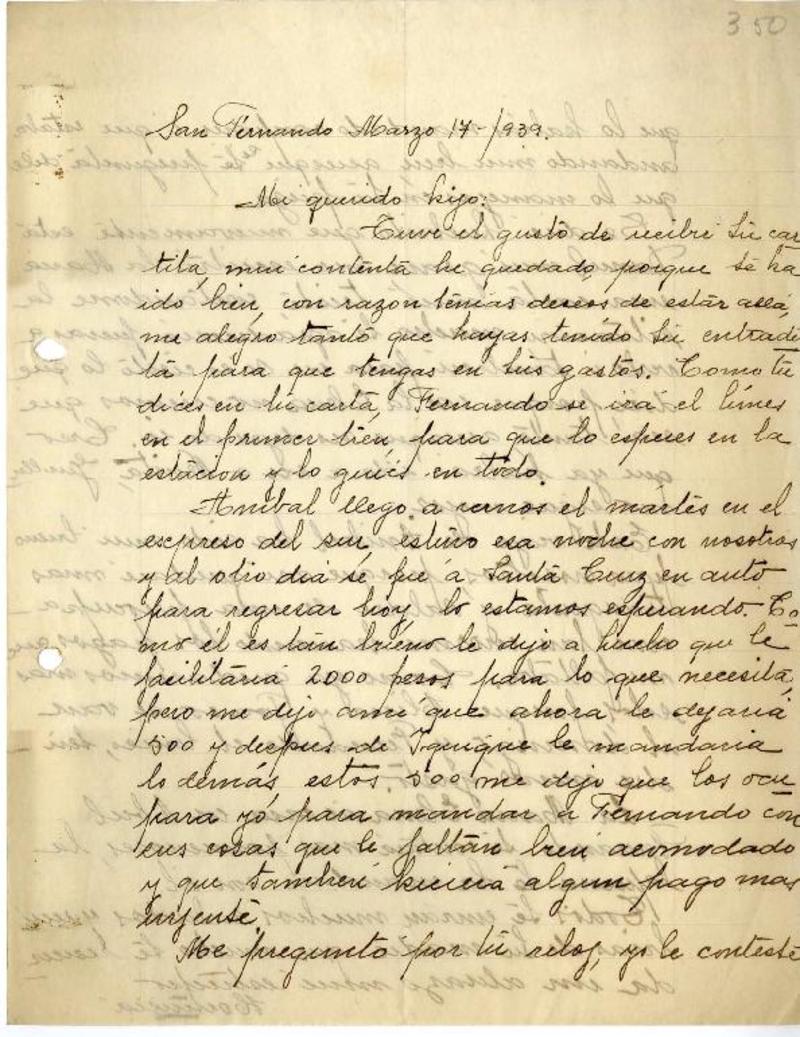 350
San Fernando Marzo 17-/939.
Mi querido hijo:
Tuve el gusto de recibir tu car
tita, mui contenta he quedado, porque te ha
ido bien, con razon tenias deseos de estar allá,
me alegro tanto que hayas tenido tu entradi
ta para que tengas en tus gastos. Como tu
dices en tu carta, Fernando se irá el lúnes
en el primer tren, para que lo esperes en la
estacion y lo guies en todo.
Anibal llego a vernos el martes en el
espreso del sur, estuvo esa noche con nosotras
y al otro dia se fué a Santa Cruz en auto
para regresar hoy, lo estamos esperando. Co
mo él es tan bueno le dijo a Lucho que le
facilitaria 2000 pesos para lo que necesita,
pero me dijo a mi que ahora le dejaria
500 y despues de Iquique le mandaria
lo demás, estos 500 me dijo que los ocu
para yó para mandar a Fernando con
sus cosas que le faltan bien acomodado
y que tambien hiciera algun pago mas
urjente.
Me pregunto por tu reloj, yo le contesté